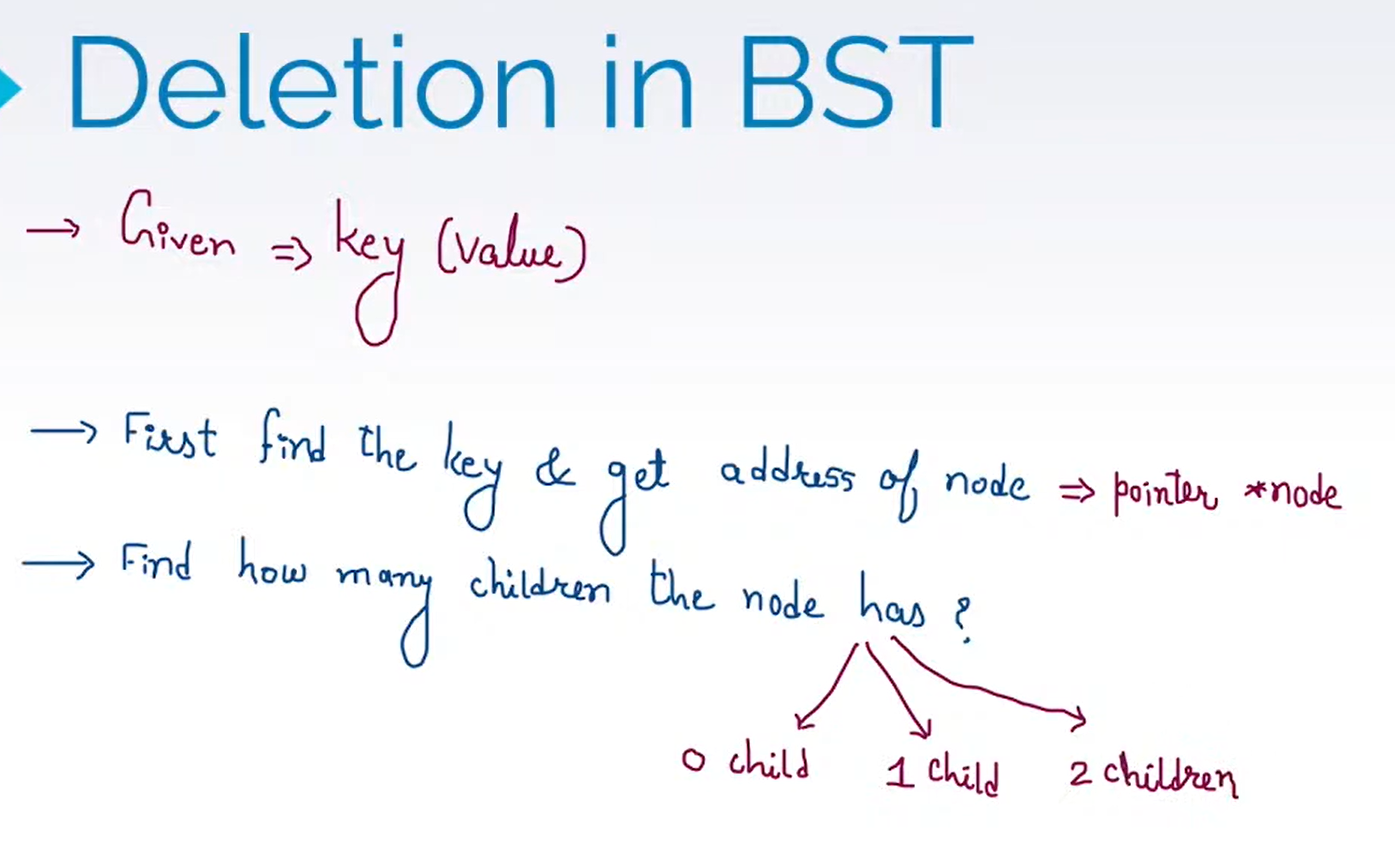 Deletion in BST
→ Given ⇒ key (value)
→ First find the key & get address of node ⇒ pointer *node
→ Find how many children the node has ?
0 child 1 child 2 children